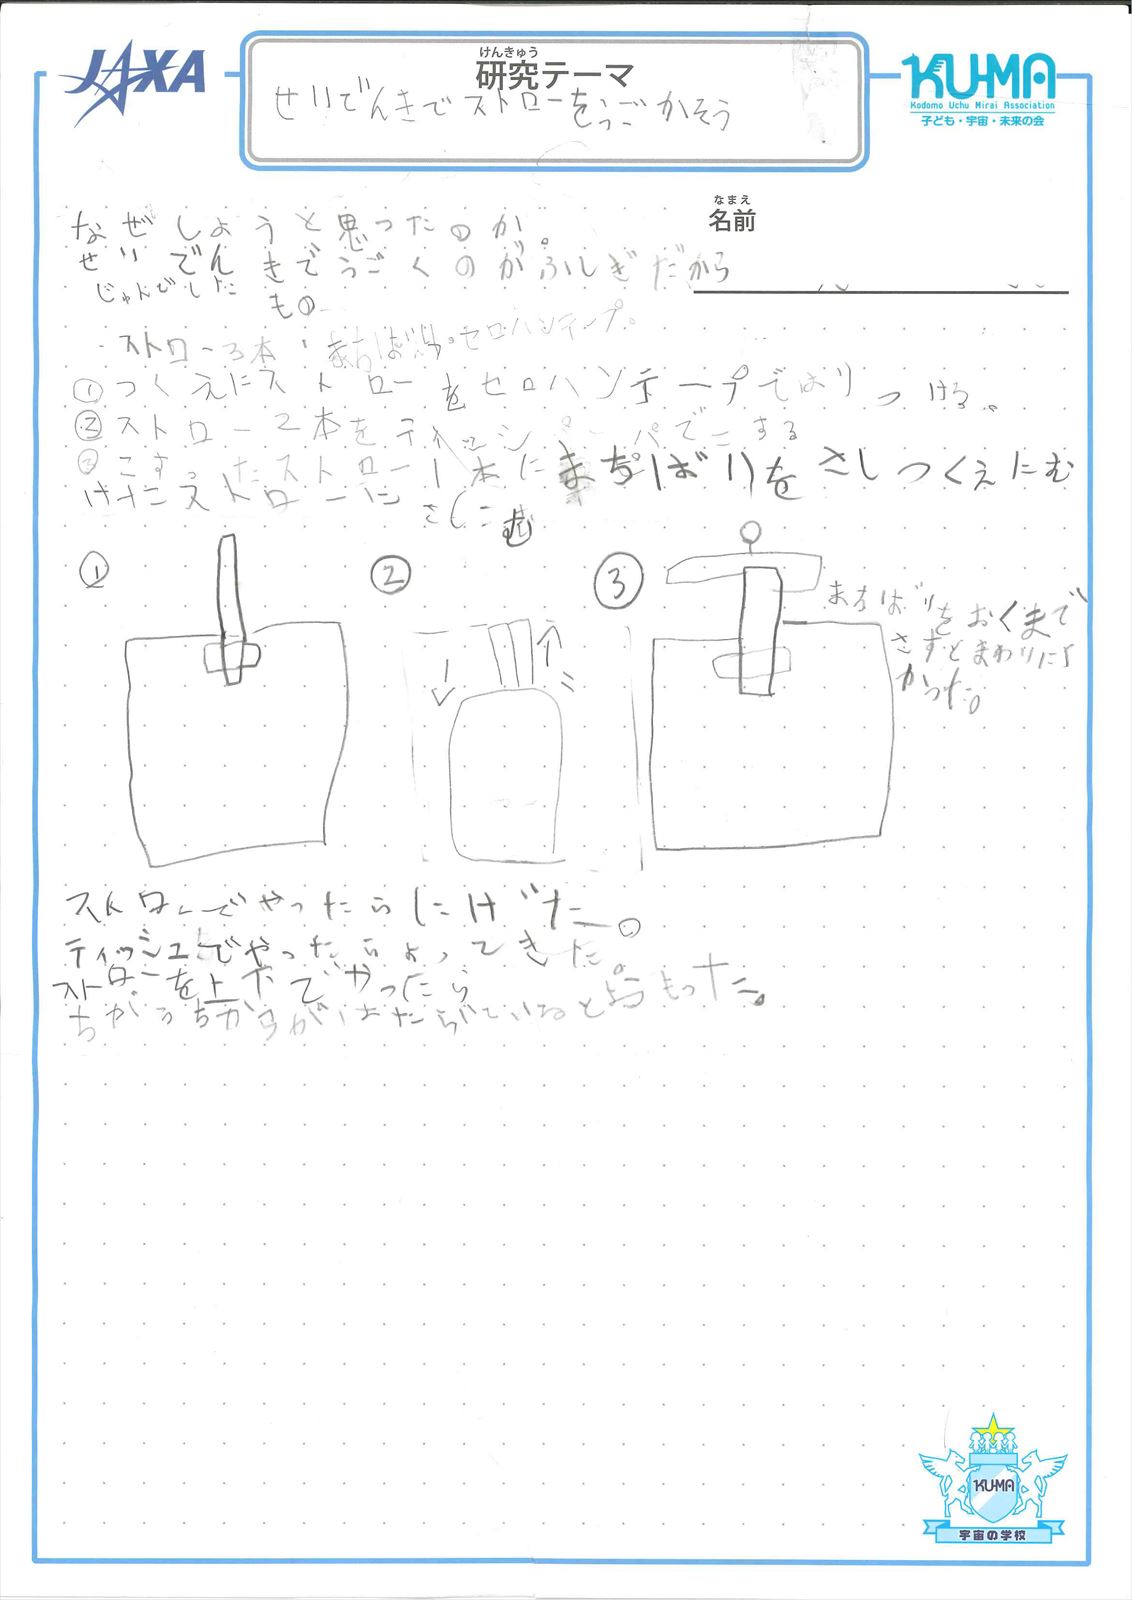 JAXA
けんきゅう
研究テーマ
せいでんきでストローをうごかそう
KU-MA
Kodomo Uchu Mirai Association
子ども・宇宙・未来の会
なまえ
名前
なぜしようと思ったのか。
せいでんきでうごくのがふしぎだから
じゅんびした もの
・ストロー3本・まちばり・セロハンテープ。
① つくえにストローをセロハンテープではりつける。
② ストロー2本をティッシュペーパでこする
③ こすったストロー1本にまちばりをさしつくえにむ
けたストローにさしこむ
①
②
③
まちばりをおくまで
さすとまわりに
かった。
ストローでやったらにげた。
ティッシュでやったらよってきた。
ストローを上下でやったら
ちがうちからがはたらいていると思もった。
KU-MA
宇宙の学校